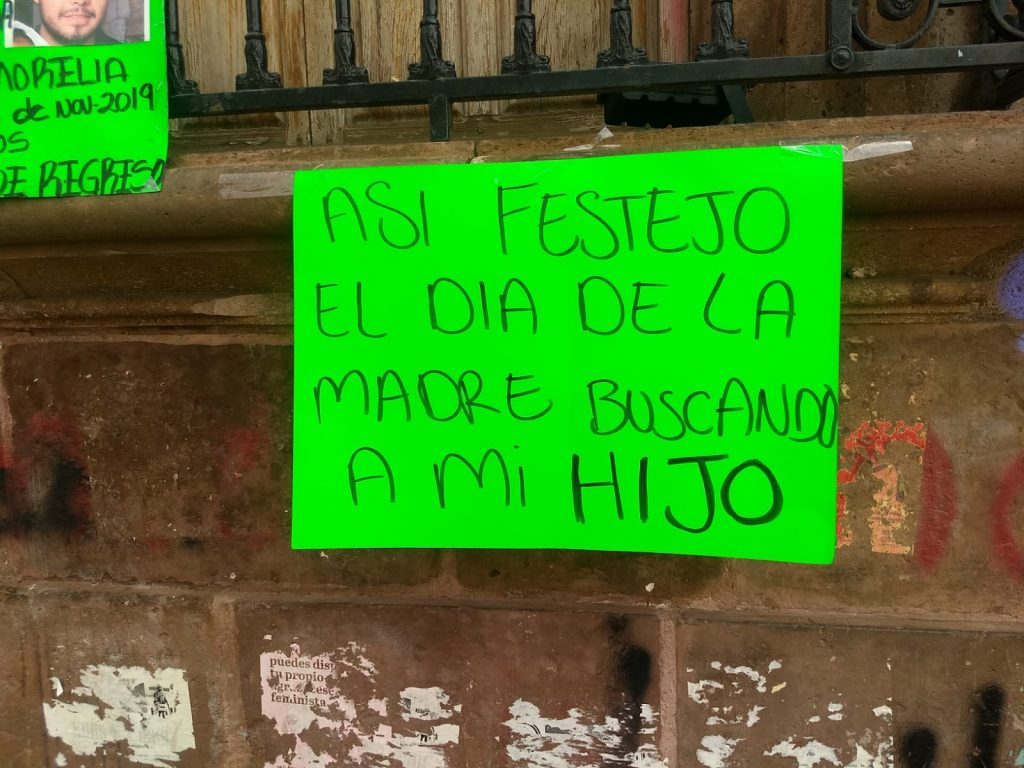 MORELIA
de NOV-2019
OS
DE REGRESO
ASI FESTEJO
EL DIA DE LA
MADRE BUSCANDO
A Mi HIJO
puedes dis
tu propio
feminista